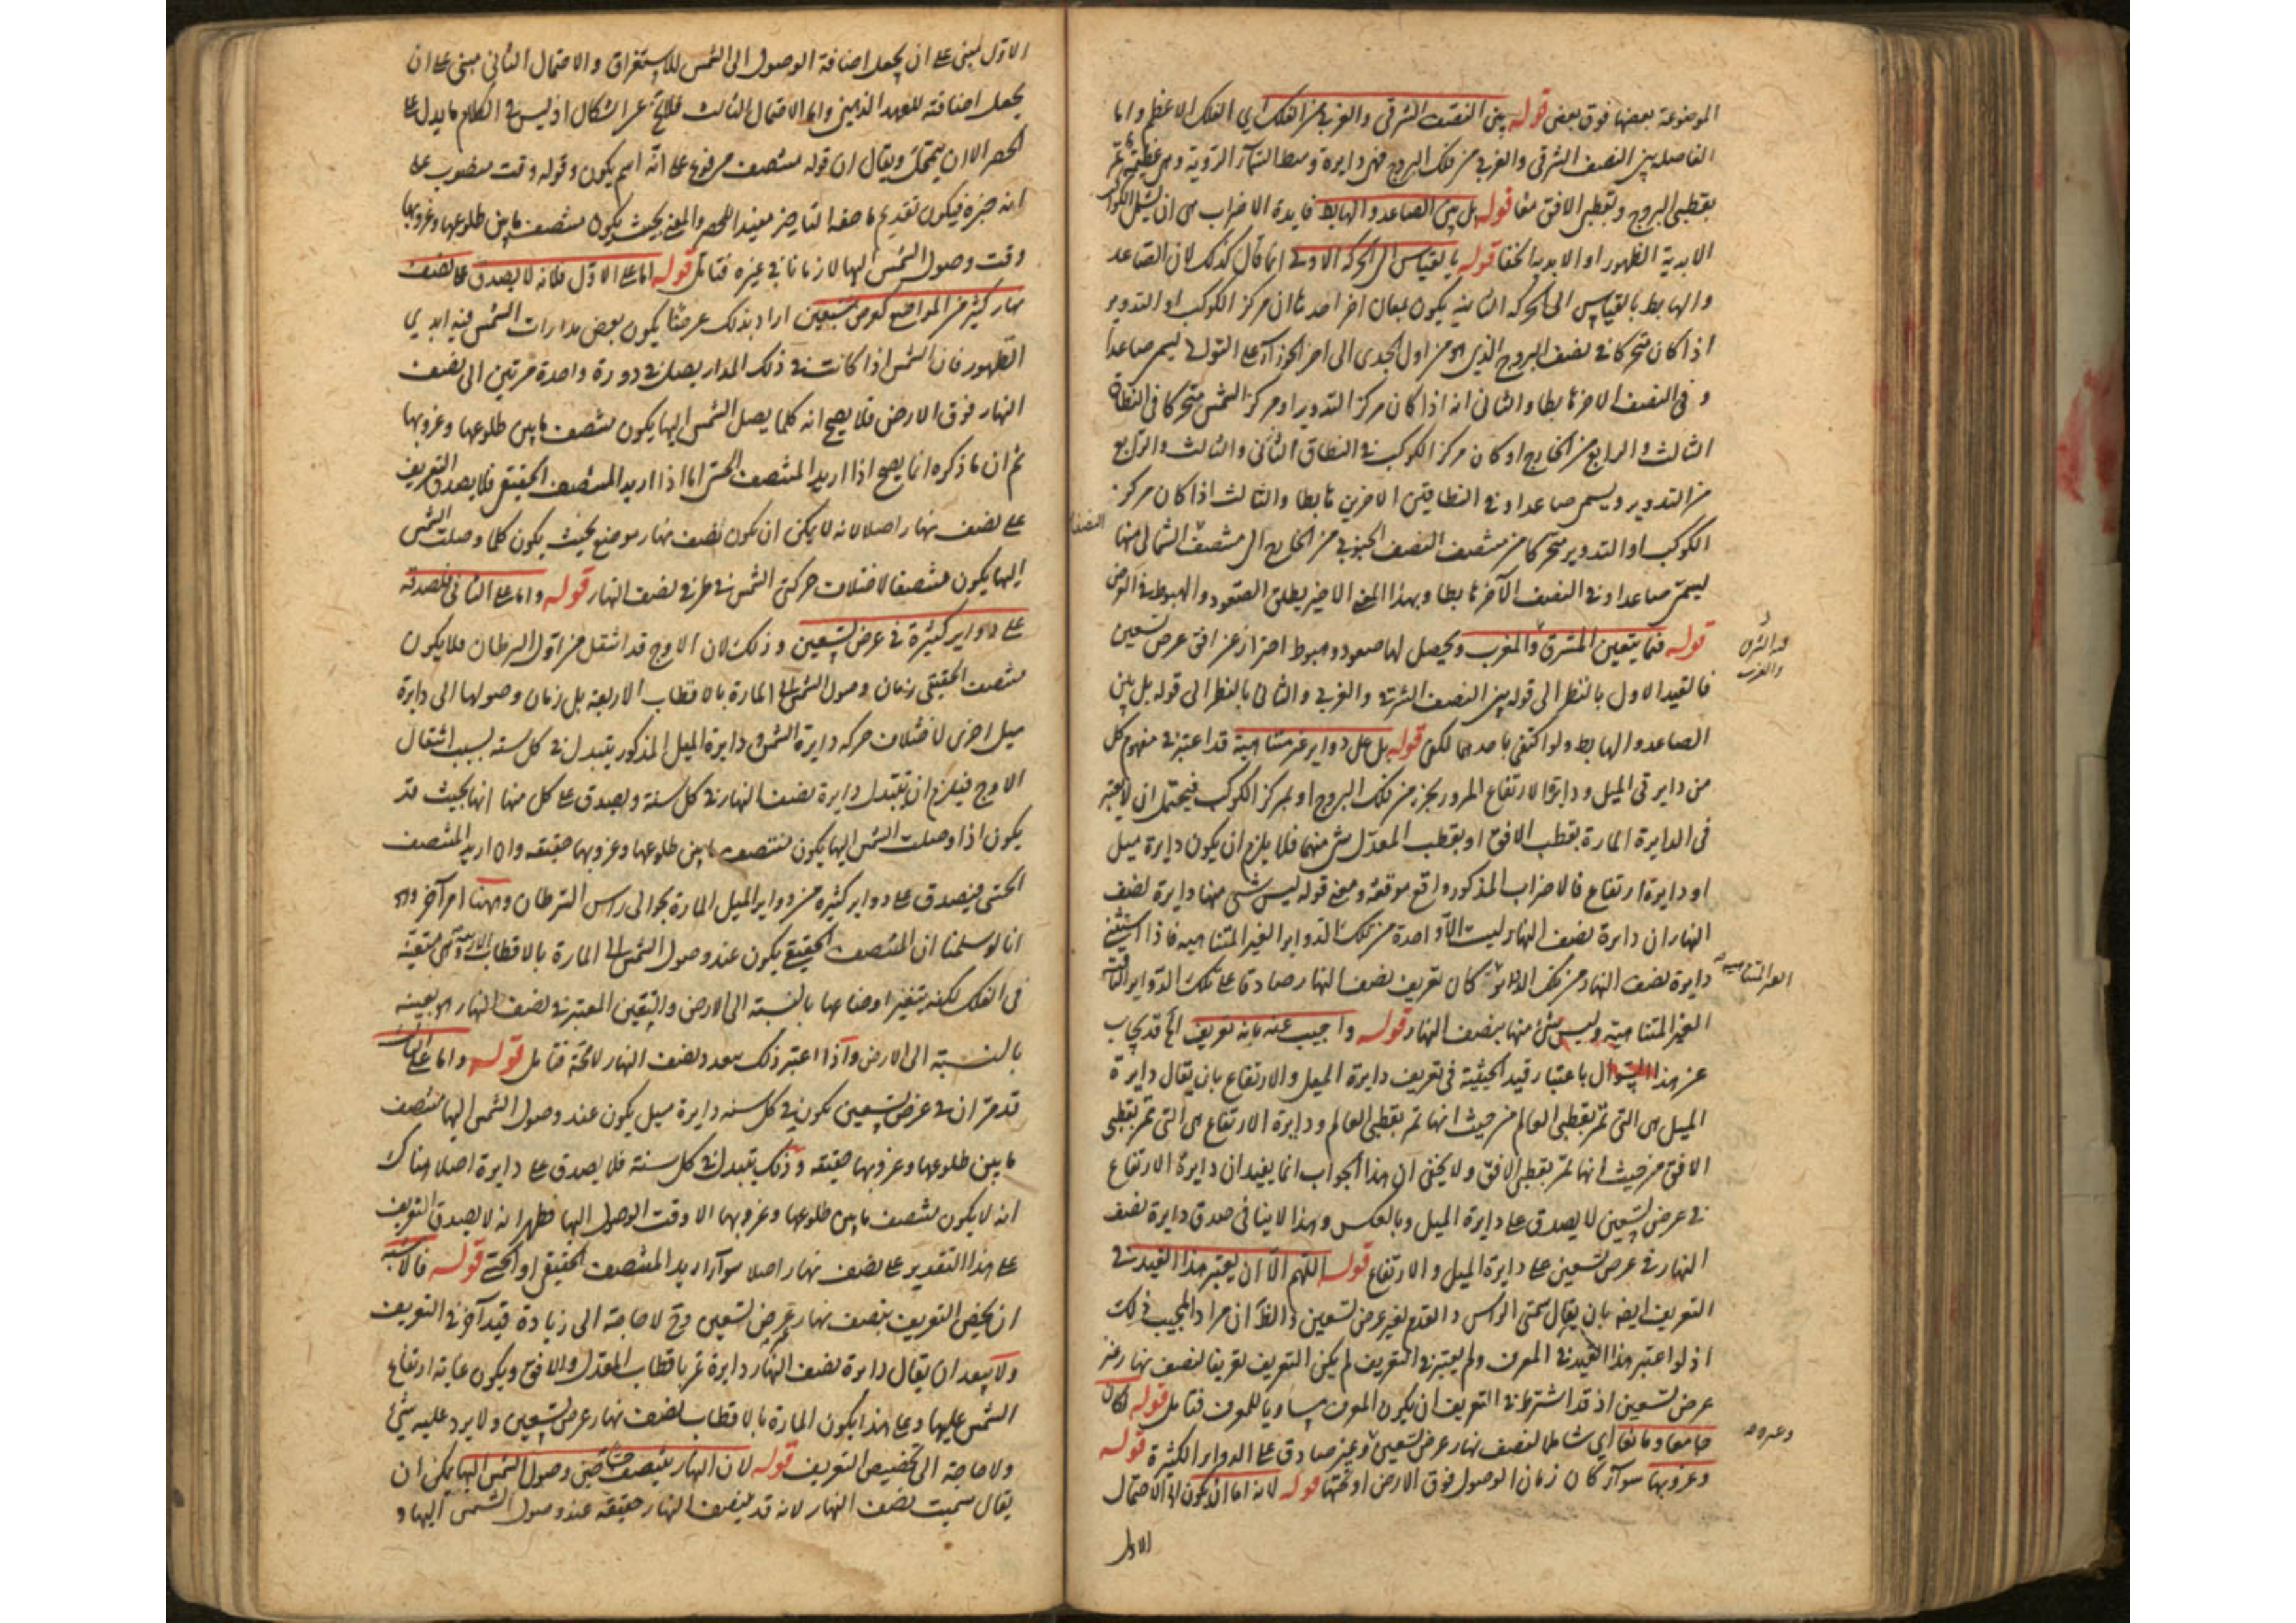 الموضوعة بعضها فوق بعض قوله بين النصف الشرقي والغربي من الفلك اي الفلك الاعظم واما
الفاصلة بين النصف الشرقي والغربي من فلك البروج فهي دايرة وسط السماء الروية وهي عظيمة تمر
بقطبي البروج وبقطبي الافق معا قوله بل بين الصاعد والهابط فايدة الاضراب هي ان يشمل الكواكب
الابدية الظهور او الابدية الخفا قوله بالقياس الى الحركة الاولى انما قال كذلك لان الصاعد
والهابط بالقياس الى الحركة الثانية يكون بمعان اخر احدها ان مركز الكوكب او التدوير
اذا كان متحركا في نصف البروج الذي هو من اول الجدي الى اخر الجوزاء على التوالي يسمى صاعدا
و في النصف الاخر هابطا والثاني انه اذا كان مركز التدوير او مركز الشمس متحركا في النطاق
الثالث والرابع من الخارج او كان مركز الكوكب في النطاق الثاني والثالث والرابع
من التدوير ويسمى صاعدا وفي النطاقين الاخرين هابطا والثالث اذا كان مركز
الكوكب او التدوير متحركا من منتصف النصف الجنوبي من الخارج الى منتصف الشمالي منها
يسمى صاعدا وفي النصف الآخر هابطا وبهذا المعنى الاخير يطلق الصعود والهبوط في العرض
قوله فيما يتعين المشرق والمغرب ويحصل لها صعود وهبوط احتراز عن افق عرض تسعين
فالقيد الاول بالنظر الى قوله بين النصف الشرقي والغربي والثاني بالنظر الى قوله بل بين
الصاعد والهابط ولو اكتفى باحدهما لكفى قوله بل على دواير غير متناهية قد اعتبر في مفهوم كل
من دايرتي الميل ودايرة الارتفاع المرور بجزء من فلك البروج او بمركز الكوكب فيحتمل ان لا يعتبر
في الدايرة المارة بقطب الافق او بقطب المعدل شئ منهما فلا يلزم ان يكون دايرة ميل
او دايرة ارتفاع فالاضراب المذكور واقع موقعه ومعنى قوله ليس شئ منها دايرة نصف
النهار ان دايرة نصف النهار ليست الا واحدة من تلك الدواير الغير المتناهية فاذا استثنى
دايرة نصف النهار من تلك الدواير كان تعريف نصف النهار صادقا على تلك الدواير الباقية
الغير المتناهية وليس شئ منها بنصف النهار قوله واجيب عنه بانه تعريف الخ قد يجاب
عن هذا السؤال باعتبار قيد الحيثية في تعريف دايرة الميل والارتفاع بان يقال دايرة
الميل هي التي تمر بقطبي العالم من حيث انها تمر بقطبي العالم ودايرة الارتفاع هي التي تمر بقطبي
الافق من حيث انها تمر بقطبي الافق ولا يخفى ان هذا الجواب انما يفيد ان دايرة الارتفاع
في عرض تسعين لا يصدق على دايرة الميل وبالعكس وهذا لا ينافي صدق دايرة نصف
النهار في عرض تسعين على دايرة الميل والارتفاع قوله اللهم الا ان يعتبر هذا القيد في
التعريف ايضه بان يقال سمتي الراس والقدم لغير عرض تسعين والظ ان مراد المجيب ذلك
اذ لو اعتبر هذا القيد في المعرف ولم يعتبر في التعريف لم يكن التعريف تعريفا لنصف نهار غير
عرض تسعين اذ قد اشترط في التعريف ان يكون المعرف مساويا للمعرف فتامل قوله لكان
جامعا ومانعا اي شاملا لنصف نهار عرض تسعين وغير صادق على الدواير الكثيرة قوله
وغروبها سوآء كان زمان الوصول فوق الارض او تحتها قوله لانه اما ان يكون الخ الاحتمال
الاول
النصف
المشرق
والمغرب
الغير المتناهية
وغيره
الاول مبني على ان يجعل اضافة الوصول الى الشمس للاستغراق والاحتمال الثاني مبني على ان
يجعل اضافته للعهد الذهني واما الاحتمال الثالث فلا يخ عن اشكال اذ ليس في الكلام ما يدل على
الحصر الا ان يتمحل ويقال ان قوله منتصف مرفوع على انه اسم يكون وقوله وقت منصوب على
انه خبره فيكون تقديم ما حقه التاخير مفيدا للحصر والمعنى بحيث يكون منتصف ما بين طلوعها وغروبها
وقت وصول الشمس اليها لا زمانا في غيره فتامل قوله اما على الاول فلانه لا يصدق على نصف
نهار كثير من المواضع كعرض سبعين اراد بذلك عرضا يكون بعض مدارات الشمس فيه ابدي
الظهور فان الشمس اذا كانت في ذلك المدار يصل في دورة واحدة مرتين الى نصف
النهار فوق الارض فلا يصح انه كلما يصل الشمس اليها يكون منتصف ما بين طلوعها وغروبها
ثم ان ما ذكره انما يصح اذا اريد المنتصف الحسي اما اذا اريد المنتصف الحقيقي فلا يصدق التعريف
على نصف نهار اصلا لانه لا يمكن ان يكون نصف نهار موضع بحيث يكون كلما وصلت الشمس
اليها يكون منتصفا لاختلاف حركتي الشمس في طرفي نصف النهار قوله واما على الثاني فلصدقه
على دواير كثيرة في عرض تسعين وذلك لان الاوج قد انتقل من اول السرطان فلا يكون
منتصف الحقيقي زمان وصول الشمس الى المارة بالاقطاب الاربعة بل زمان وصولها الى دايرة
ميل اخرى لاختلاف حركة دايرة الشمس و دايرة الميل المذكور يتبدل في كل سنة بسبب انتقال
الاوج فيلزم ان يتبدل دايرة نصف النهار في كل سنة ويصدق على كل منها انها بحيث قد
يكون اذا وصلت الشمس اليها يكون منتصف ما بين طلوعها وغروبها حقيقة وان اريد المنتصف
الحسي فيصدق على دواير كثيرة من دواير الميل المارة بحوالى راس السرطان وههنا امر آخر وهو
انا لو سلمنا ان المنتصف الحقيقي يكون عند وصول الشمس الى المارة بالاقطاب الاربعة وهي متعينة
في الفلك لكنه يتغير اوضاعها بالنسبة الى الارض والتعين المعتبر في نصف النهار هو تعينه
بالنسبة الى الارض واذا اعتبر ذلك تعدد نصف النهار لا محة فتامل قوله واما على الثالث
قد مر ان في عرض تسعين يكون في كل سنة دايرة ميل يكون عند وصول الشمس اليها منتصف
ما بين طلوعها وغروبها حقيقة وذلك يتبدل في كل سنة فلا يصدق على دايرة اصلا هناك
انه لا يكون منتصف ما بين طلوعها وغروبها الا وقت الوصول اليها فظهر انه لا يصدق التعريف
على هذا التقدير على نصف نهار اصلا سوآء اريد المنتصف الحقيقي او الحسي قوله فالاشبه
ان يخص التعريف بنصف نهار غير عرض تسعين وح لا حاجة الى زيادة قيد آخر في التعريف
ولا يبعد ان يقال دايرة نصف النهار دايرة تمر باقطاب المعدل والافق ويكون غاية ارتفاع
الشمس عليها وعلى هذا يكون المارة بالاقطاب نصف نهار عرض تسعين ولا يرد عليه شئ
ولا حاجة الى تخصيص التعريف قوله لان النهار ينتصف حسا حين وصول الشمس اليها يمكن ان
يقال سميت نصف النهار لانه قد ينتصف النهار حقيقة عند وصول الشمس اليها و